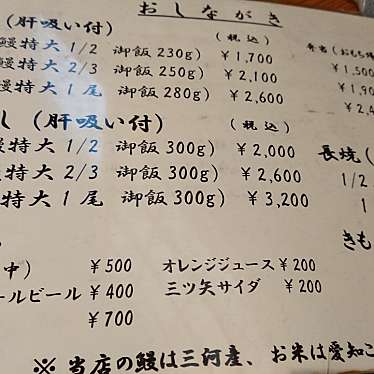 おしながき
(肝吸い付) (税込) 弁当(おもち帰
鰻特大1/2 御飯230g) ¥1,700 ¥1,500
鰻特大2/3 御飯250g) ¥2,100 ¥1,90
鰻特大1尾 御飯280g) ¥2,600 ¥2,4
し(肝吸い付) (税込)
鰻特大1/2 御飯300g) ¥2,000 長焼(
特大2/3 御飯300g) ¥2,600 1/2
特大1尾 御飯300g) ¥3,200 1
きも
中) ¥500 オレンジジュース ¥200
ールビール ¥400 三ツ矢サイダ ¥200
¥700
※当店の鰻は三河産、お米は愛知こ